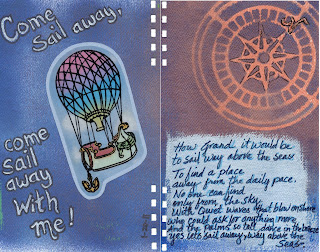 Come
Sail away,
come
sail
away
With
me!
How Grand it would be
to sail way above the seas
To find a place
away from the daily pace.
No one can find
only from the sky.
With Quiet waves that blow onshore
who could ask for anything more
And the palms so tall, dance in the breeze
yes lets sail away, way above the
Seas-